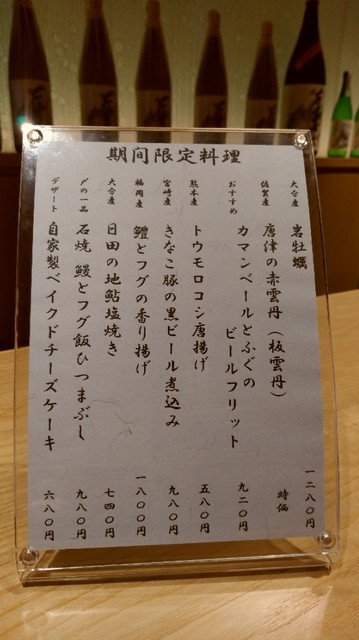 期間限定料理
大分産 岩牡蠣 一二八〇円
佐賀産 唐津の赤雲丹(板雲丹) 時価
おすすめ カマンベールとふぐの
ビールフリット 九二〇円
熊本産 トウモロコシ唐揚げ 五八〇円
宮崎産 きなこ豚の黒ビール煮込み 九八〇円
福岡産 鱧とフグの香り揚げ 一八〇〇円
大分産 日田の地鮎塩焼き 七四〇円
〆の一品 石焼 鰻とフグ飯ひつまぶし 九八〇円
デザート 自家製ベイクドチーズケーキ 六八〇円